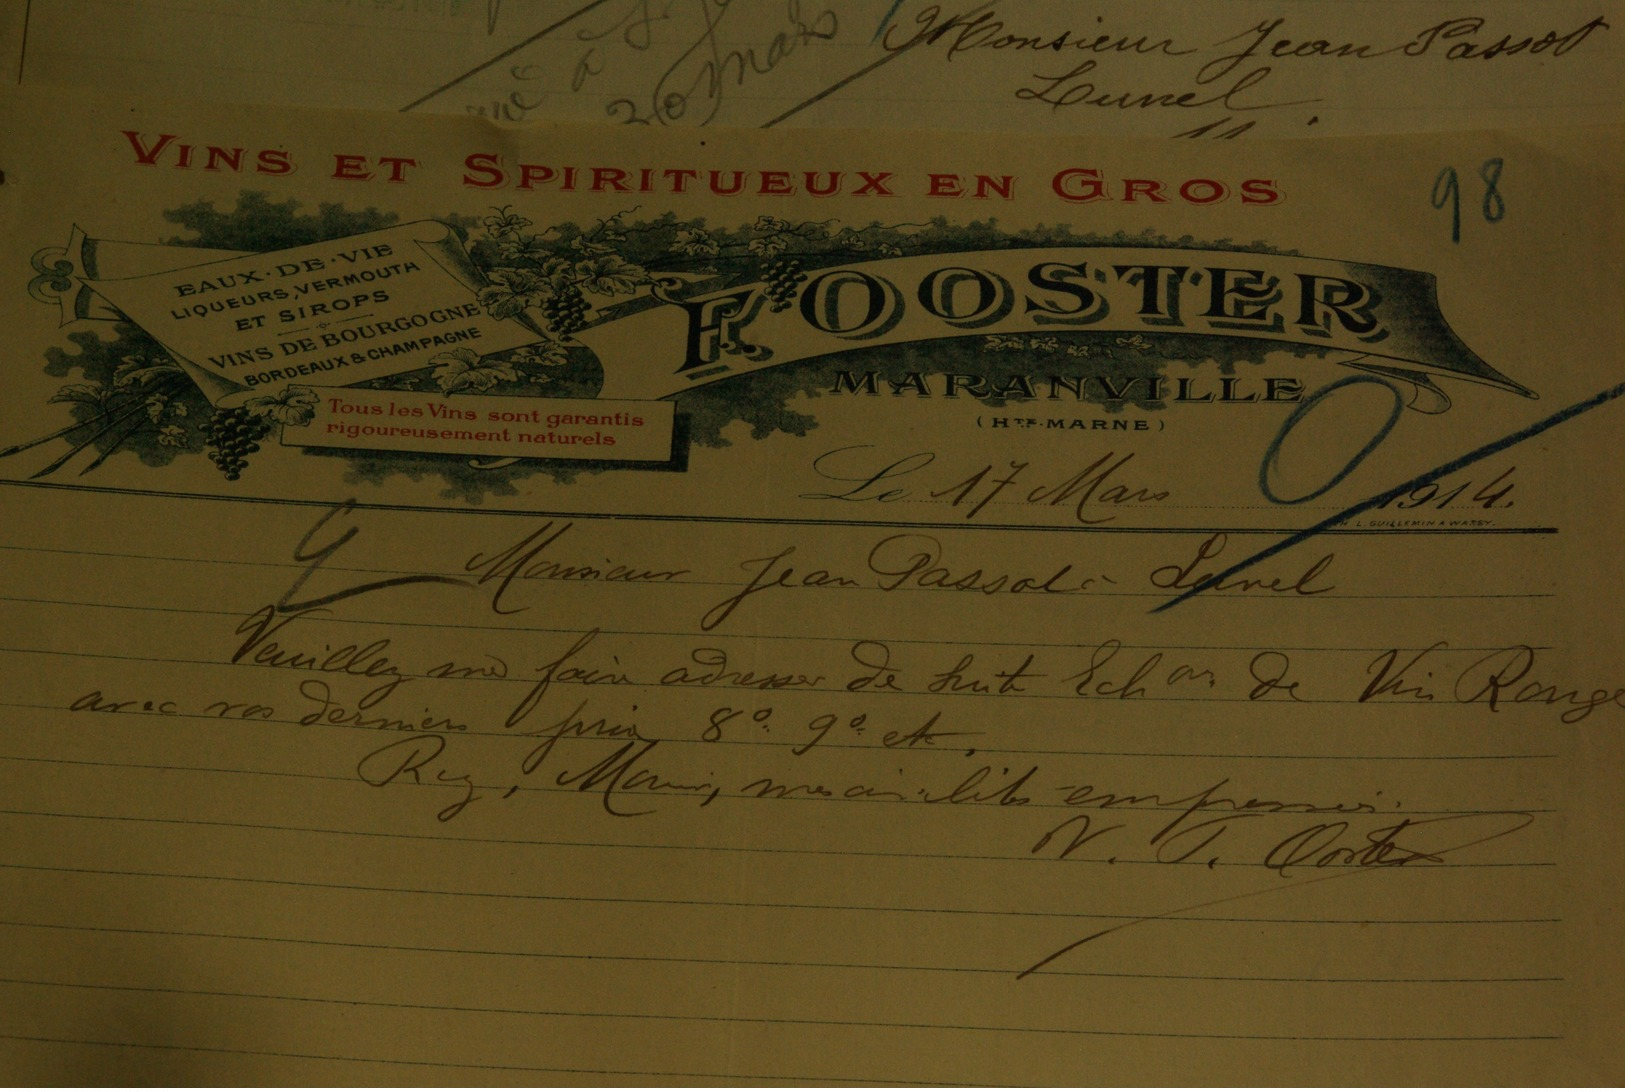 Monsieur Jean Passot
Lunel.
à
20 Mars
VINS ET SPIRITUEUX EN GROS
98
EAUX-DE-VIE
LIQUEURS, VERMOUTH
ET SIROPS
VINS DE BOURGOGNE
BORDEAUX & CHAMPAGNE
Tous les Vins sont garantis
rigoureusement naturels
F. OOSTER
MARANVILLE
(HTE-MARNE)
Le 17 Mars 1914.
L. GUILLEMIN A WASSY.
Monsieur Jean Passot - Lunel
Veuillez me faire adresser de suite Echons de Vin Rouge
avec vos derniers prix 8° 9° etc.
Rez, Monsieur, mes civilités empressées.
Ooster